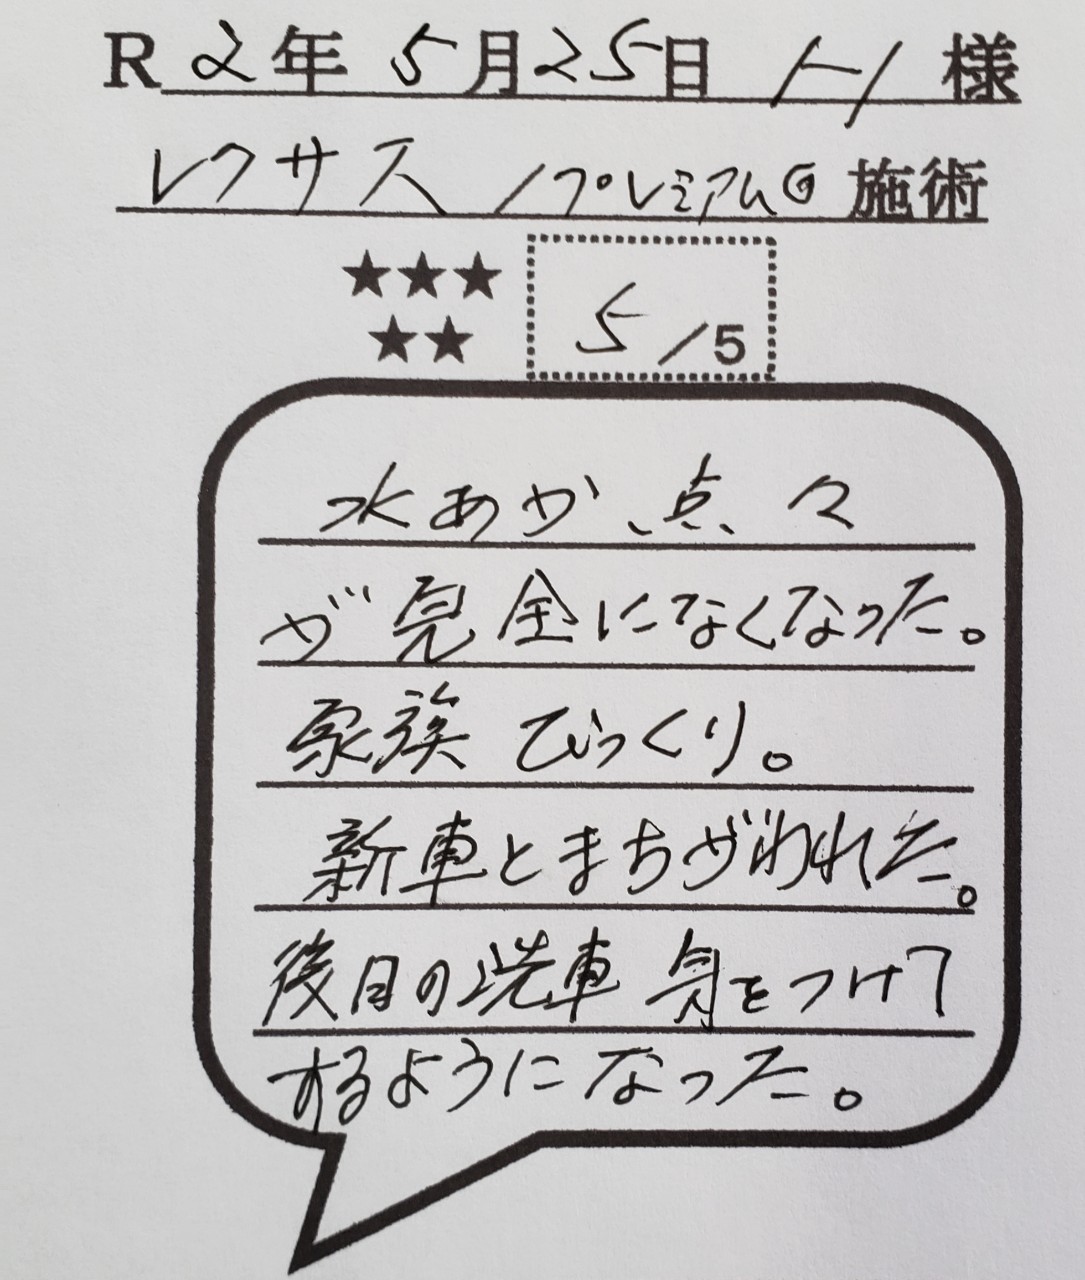 R2年5月25日 H様
レクサス/プレミアムG 施術
★★★
★★
5/5
水あか、点々
が完全になくなった。
家族びっくり。
新車とまちがわれた。
後日の洗車 気をつけて
するようになった。